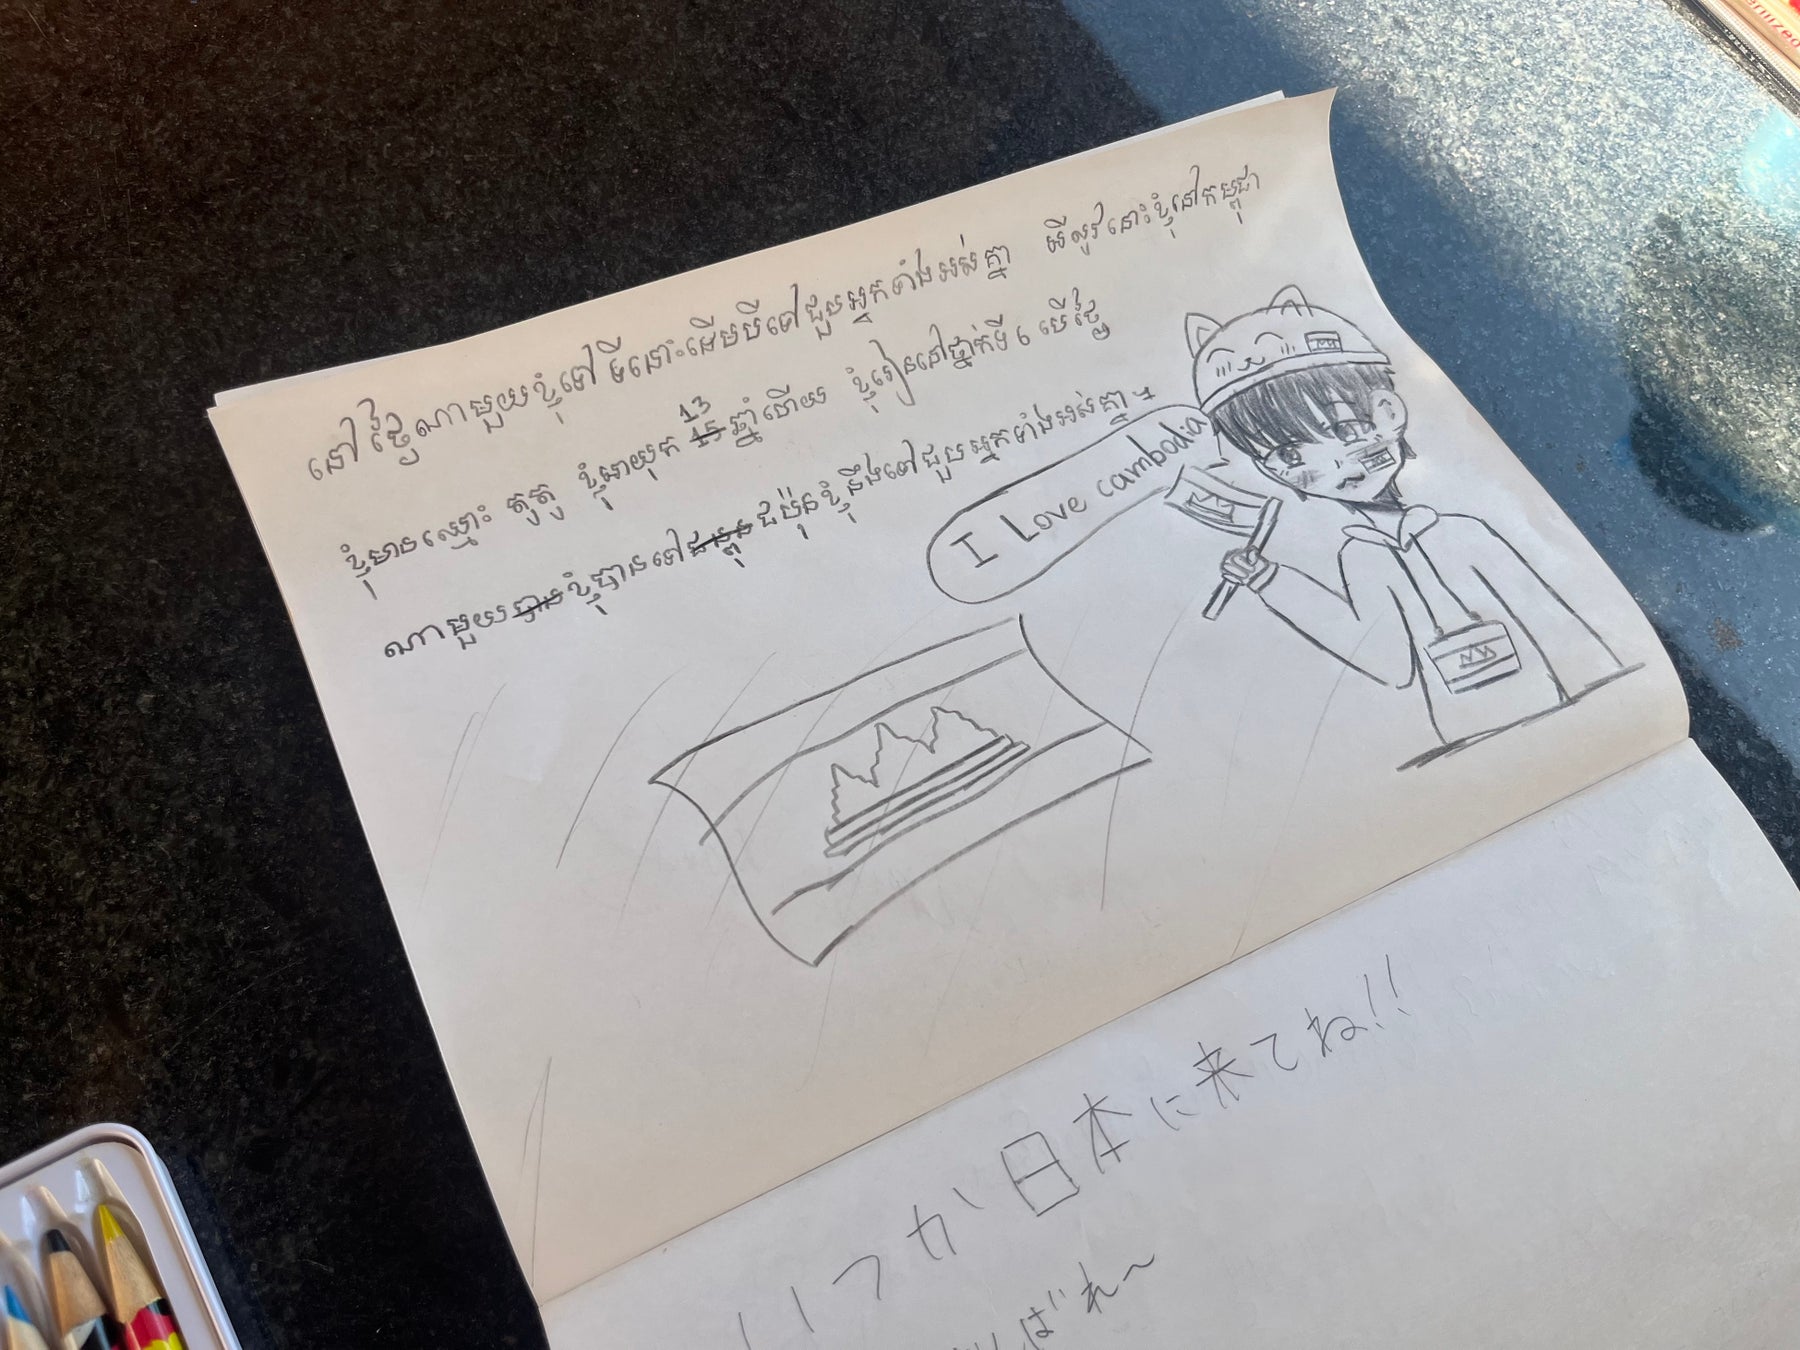 នៅថ្ងៃណាមួយខ្ញុំទៅទីនោះដើមបីទៅជួបអ្នកទាំងអស់គ្នា អីសូវនោះខ្ញុំនៅកម្ពុជា
ខ្ញុំមានឈ្មោះ តូតូ ខ្ញុំអាយុក 13 ឆ្នាំហើយ ខ្ញុំរៀននៅថ្នាក់ទី 6 បើថ្ងៃ
ណាមួយ ខ្ញុំបានទៅ ជប៉ុនខ្ញុំនឹងទៅជួបអ្នកទាំងអស់គ្នា
I Love cambodia
いつか日本に来てね!!
ばれ〜